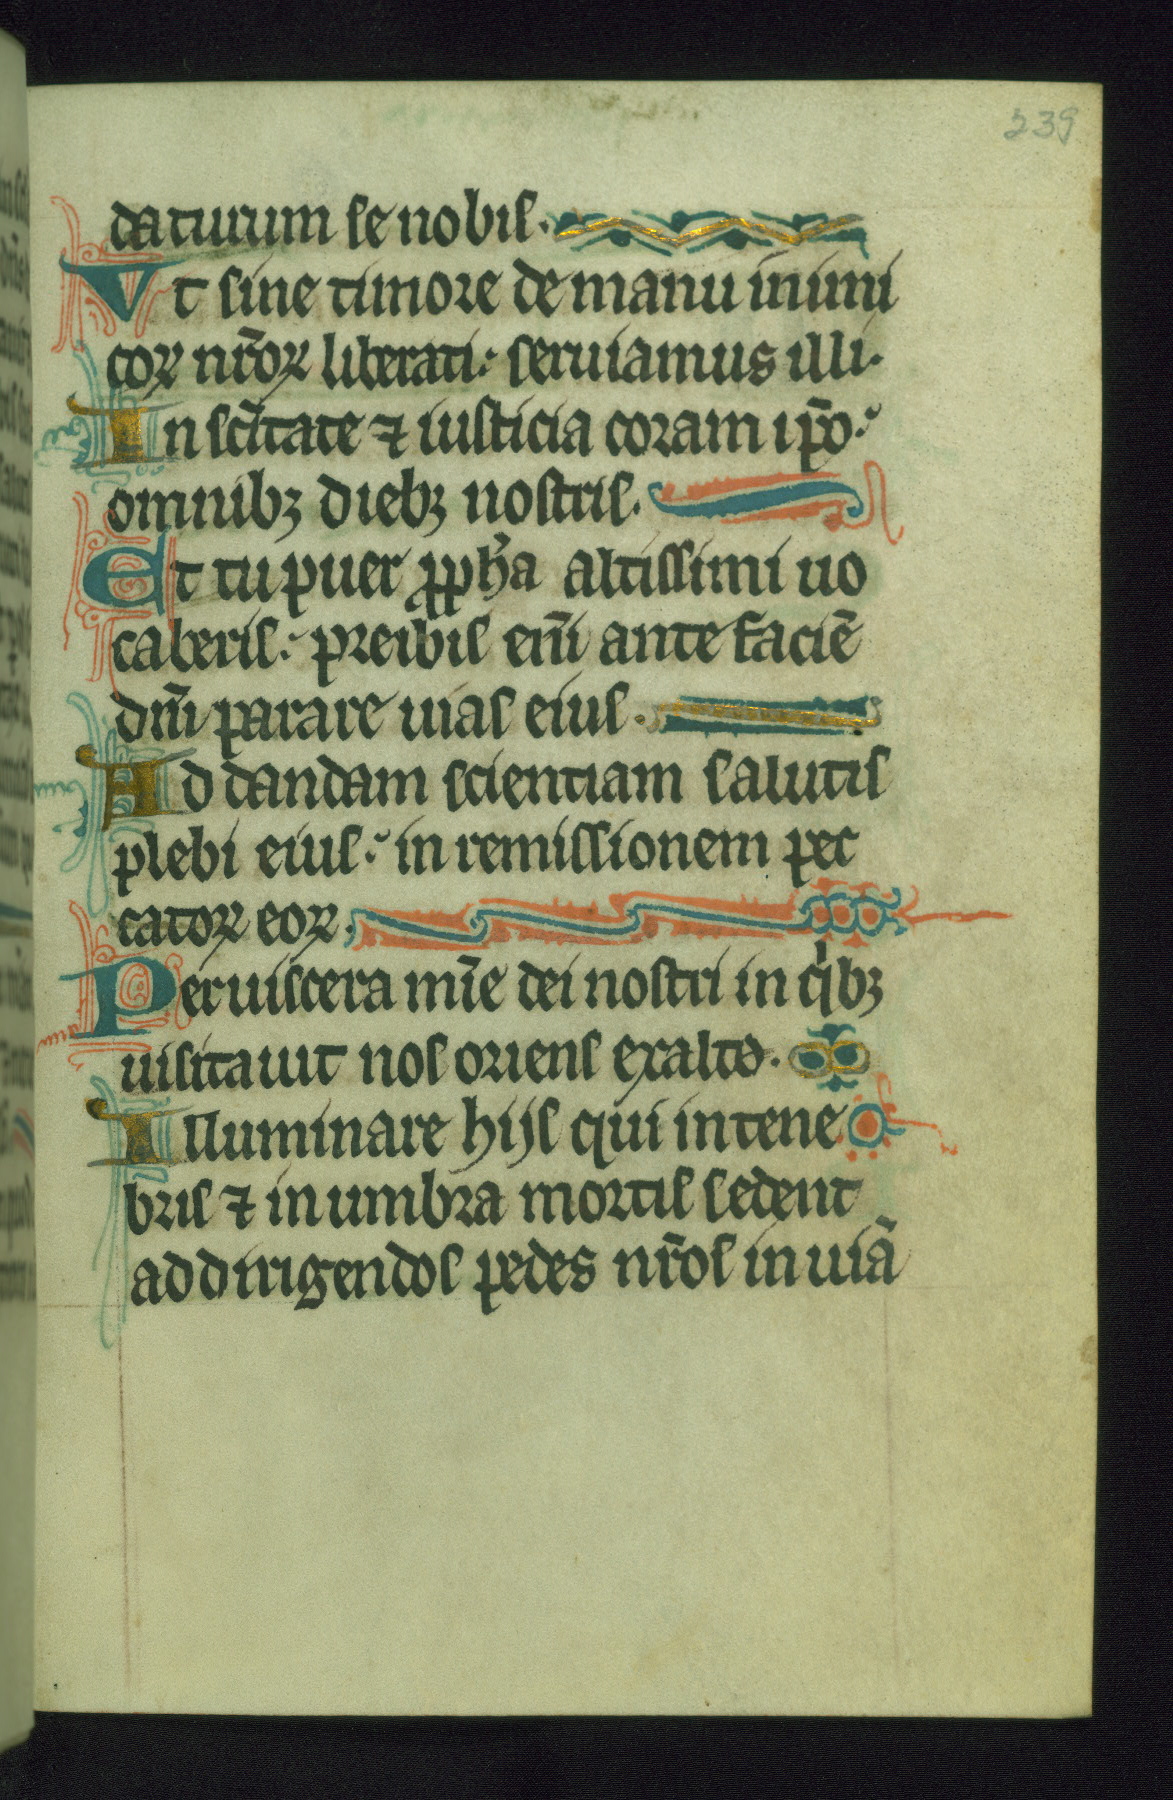 239
daturum se nobis.
Vt sine timore de manu inimi
coꝝ nr̄oꝝ liberati: seruiamus illi.
In sc̄itate ⁊ iusticia coram ip̄o:
omnibꝫ diebꝫ nostris.
Et tu puer ꝓph̄a altissimi uo
caberis: preibis eni̅ ante faciē
dn̄i parare uias eius.
Ad dandam scientiam salutis
plebi eius: in remissionem pec
catoꝝ eoꝝ.
Per uiscera mi̅e dei nostri in qͥbꝫ
uisitauit nos oriens exalto.
Illuminare hijs qui in tene
bris ⁊ in umbra mortis sedent
ad dirigendos pedes nr̄os in uiā